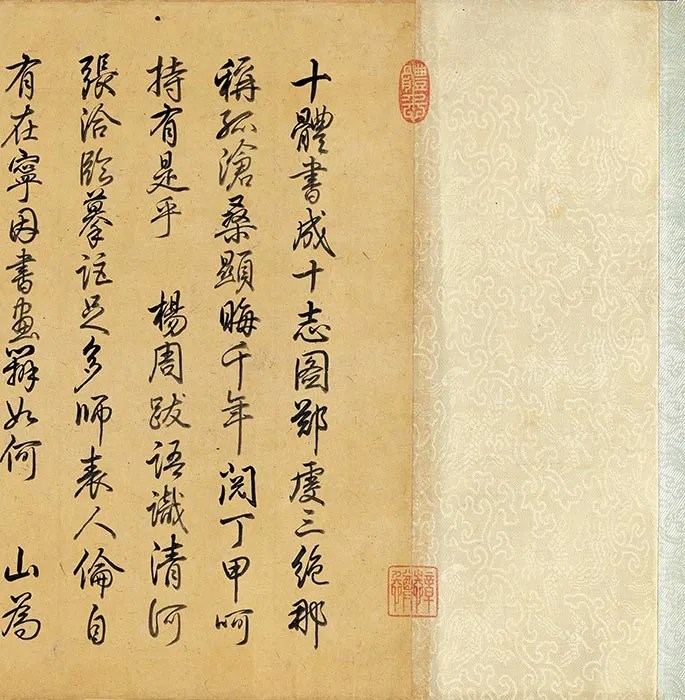 十體書成十志圖鄭虔三絕那
稱孤滄桑顯晦千年閱丁甲呵
持有是乎 楊周跋語識清河
張洽臨摹詎足多師表人倫自
有在寧因書畫辨如何 山為